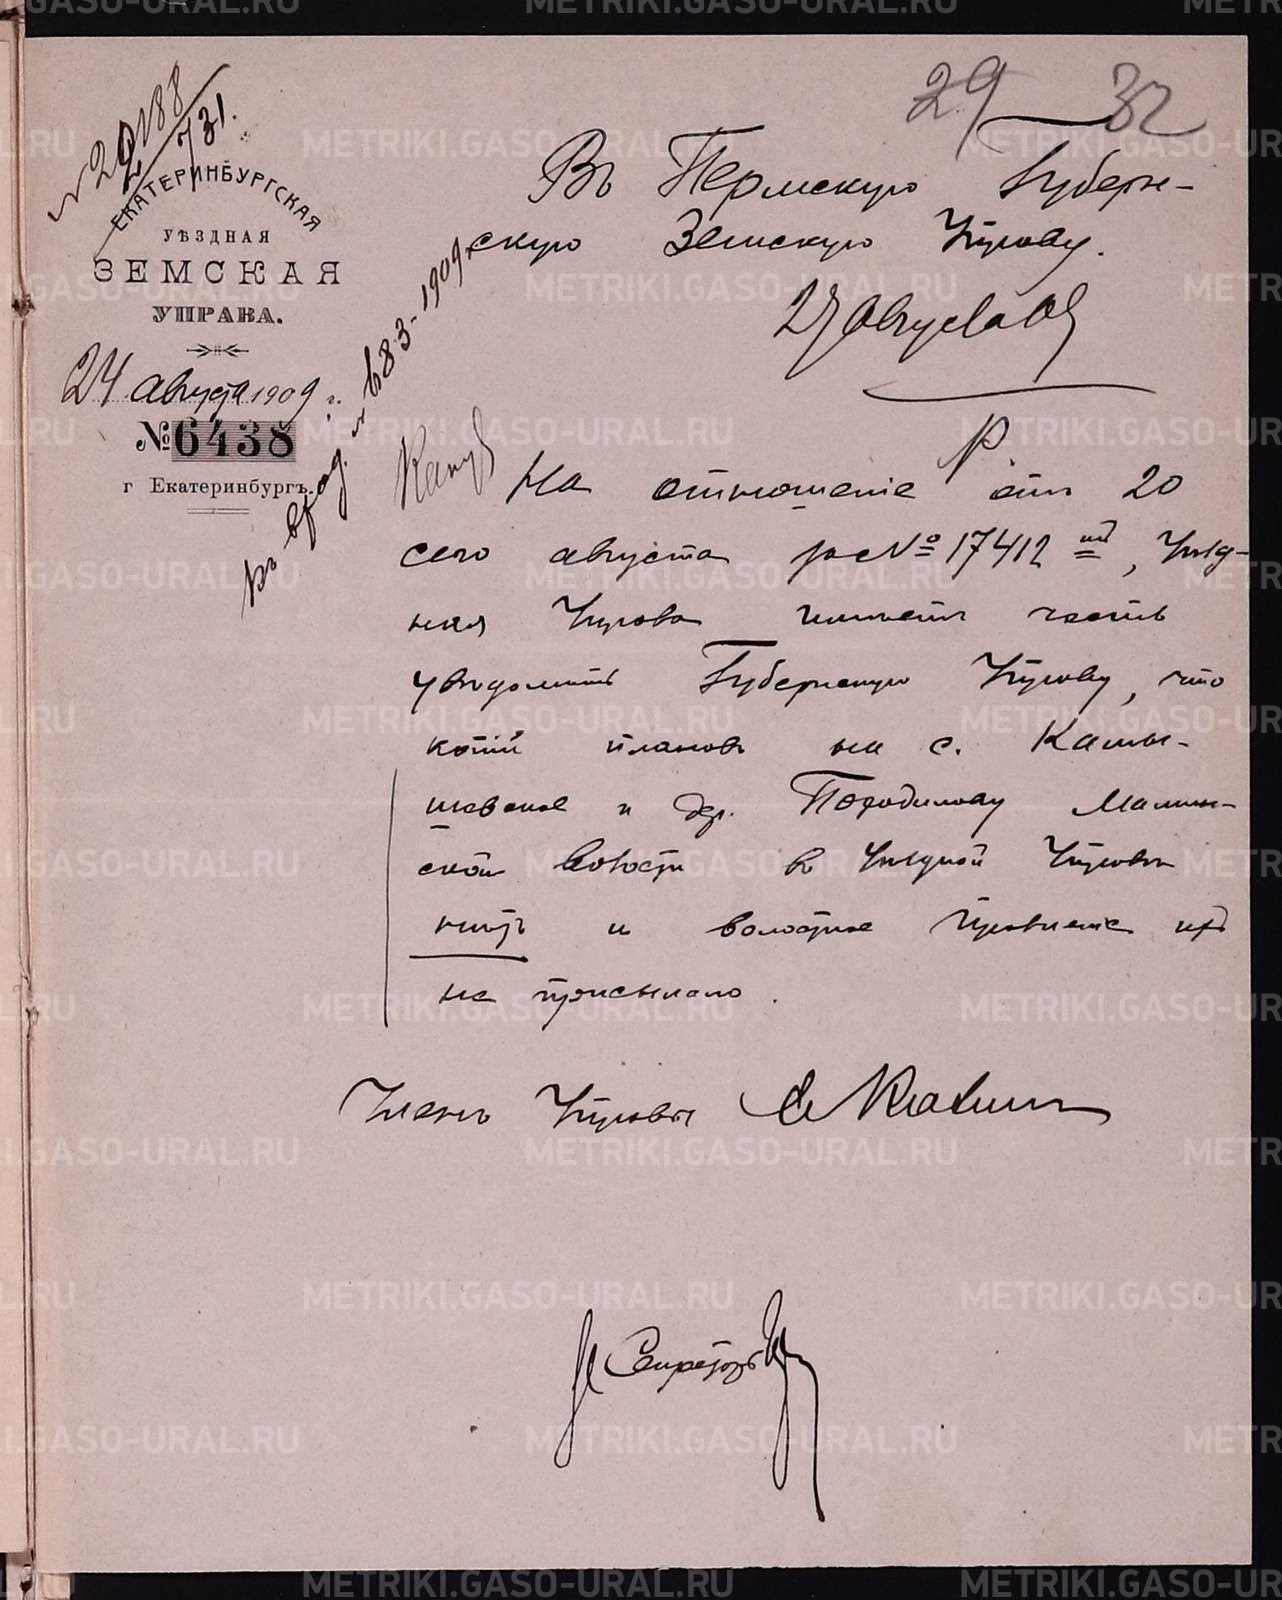 29 32
№ 29188
731.
ЕКАТЕРИНБУРГСКАЯ
УѢЗДНАЯ
ЗЕМСКАЯ
УПРАВА.
24 августа 1909 г.
№ 6438
г. Екатеринбургъ.
683 - 1909
Въ Пермскую Губерн-
скую Земскую Управу.
27 августа 09
На отношеніе отъ 20
сего августа за № 17412, Уѣзд-
ная Управа имѣетъ честь
увѣдомить Губернскую Управу, что
копій плановъ на с. Камы-
шевское и дер. Поводилову Малин-
ской волости въ Уѣздной Управѣ
нѣтъ и волостное Правленіе ихъ
не присылало.
Членъ Управы
Секретарь
METRIKI.GASO-URAL.RU